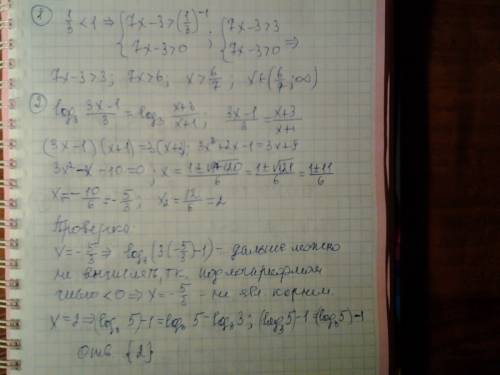 ① 1/3 < 1 ⇒ { 7x-3 > (1/3)^-1 ; 7x-3>0 ; { 7x-3 > 3 ; 7x-3>0 ⇒
7x-3>3; 7x>6; x>6/7; x∈(6/7; ∞)
② log₃ (3x-1)/3 = log₃ (x+3)/(x+1); (3x-1)/3 = (x+3)/(x+1)
(3x-1)(x+1)=3(x+3); 3x²+2x-1=3x+9
3x²-x-10=0; x = (1±√(1+120))/6 = (1±√121)/6 = (1±11)/6
x₁=-10/6=-5/3; x₂=12/6=2
Проверка
x=-5/3 ⇒ log₃(3(-5/3)-1) - дальше можно
не вычислять, т.к. под логарифмом
число <0 ⇒ x=-5/3 - не явл корнем.
x=2 ⇒ (log₃ 5)-1=log₃ 5-log₃ 3; (log₃ 5)-1=(log₃ 5)-1
Отв {2}